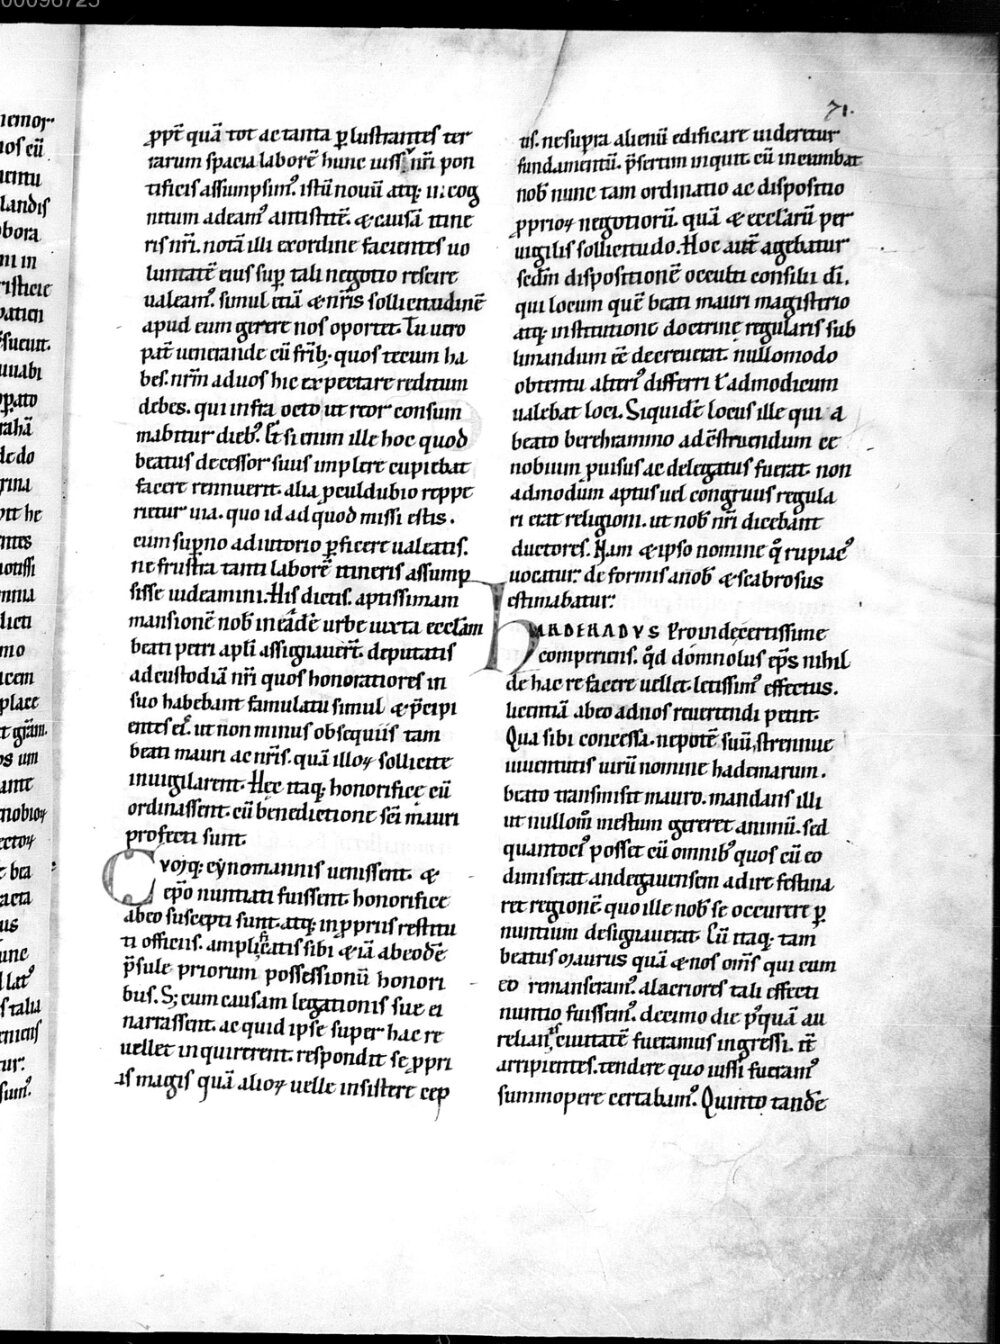 00096725
71.
ꝓpt̄ quā tot ac tanta ꝑlustrantes ter
rarum spacia laborē hunc iussu nr̄i pon
tificis assumpsim᷒. istū nouū atq; incog
nitum adeam᷒ antistitē. & causā itine
ris nr̄i. notā illi ex ordine facientes uo
luntatē eius suꝑ tali negotio rescire
ualeam᷒. simul etiā & nr̄is sollicitudinē
apud eum gerere nos oportet. Tu uero
pat̄ uenerande cū fr̄ib; quos tecum ha
bes. nr̄m ad uos hic expectare reditum
debes. qui infra octo ut reor consum
mabitur dieb᷒. Et si enim ille hoc quod
beatus decessor suus implere cupiebat
facere rennuerit. alia ꝓculdubio reppe
rietur uia. quo id ad quod missi estis.
cum suꝑno adiutorio ꝑficere ualeatis.
ne frustra tanti laborē itineris assump
sisse uideamini. His dictis. aptissimam
mansionē nob̄ in eādē urbe iuxta eccl̄am
beati petri apl̄i assignauer̄t. deputatis
ad custodiā nr̄i quos honoratiores in
suo habebant famulatu simul & p̄cipi
entes ei᷒. ut non minus obsequiis tam
beati mauri ac nr̄is. quā illoꝝ sollicite
inuigilarent. Hęc itaq; honorifice cū
ordinassent. cū benedictione sc̄i mauri
profecti sunt.
Cvoq; cynomannis uenissent. &
ep̄o nuntiati fuissent. honorifice
ab eo suscepti sunt. atq; in ꝓpriis restitu
ti officiis. amplificatis sibi & iā ab eodē
p̄sule priorum possessionū honori
bus. S; cum causam legationis sue ei
narrassent. ac quid ipse super hac re
uellet inquirerent. respondit se ꝓpri
is magis quā alioꝝ uelle insistere cep
tis. ne supra alienū edificare uideretur
fundamentū. p̄sertim inquit. cū incumbat
nob̄ nunc tam ordinatio ac dispositio
ꝓprioꝝ negotiorū. quā & eccl̄arū per
uigilis sollicitudo. Hoc aut̄ agebatur
sedm̄ dispositionē occulti consilii dī.
qui locum quē beati mauri magisterio
atq; institutione doctrinę regularis sub
limandum eē decreuerat. nullomodo
obtentu alteri᷒ differri ł admodicum
ualebat loci. Siquidē locus ille qui a
beato berehrammo ad c̄struendum ce
nobium ꝓuisus ac delegatus fuerat. non
admodum aptus uel congruus regula
ri erat religioni. ut nob̄ nr̄i dicebant
ductores. Nam & ipso nomine q̄ rupiac᷒
uocatur. deformis a nob̄ & scabrosus
estimabatur.
hARDERADVS Proinde certissime
comperiens. qd̄ domnolus ep̄s nihil
de hac re facere uellet. letissim᷒ effectus.
licentiā ab eo ad nos reuertendi petiit.
Qua sibi concessa. nepotē suū, strennue
iuuentutis uirū nomine hademarum.
beato transmisit mauro. mandans illi
ut nullom̄ mestum gereret animū. sed
quantoci᷒ posset cū omnib᷒ quos cū eo
dimiserat andegauensem adire festina
ret regionē quo ille nob̄ se occurere ꝑ
nuntium designauerat. Cū itaq; tam
beatus maurus quā & nos om̄s qui cum
eo remanseram᷒. alacriores tali effecti
nuntio fuissem᷒. decimo die p᷒quā au
relianis ciuitatē fueramus ingressi. itē
arripientes. tendere quo iussi fueram᷒
summopere certabam᷒. Quinto tandē